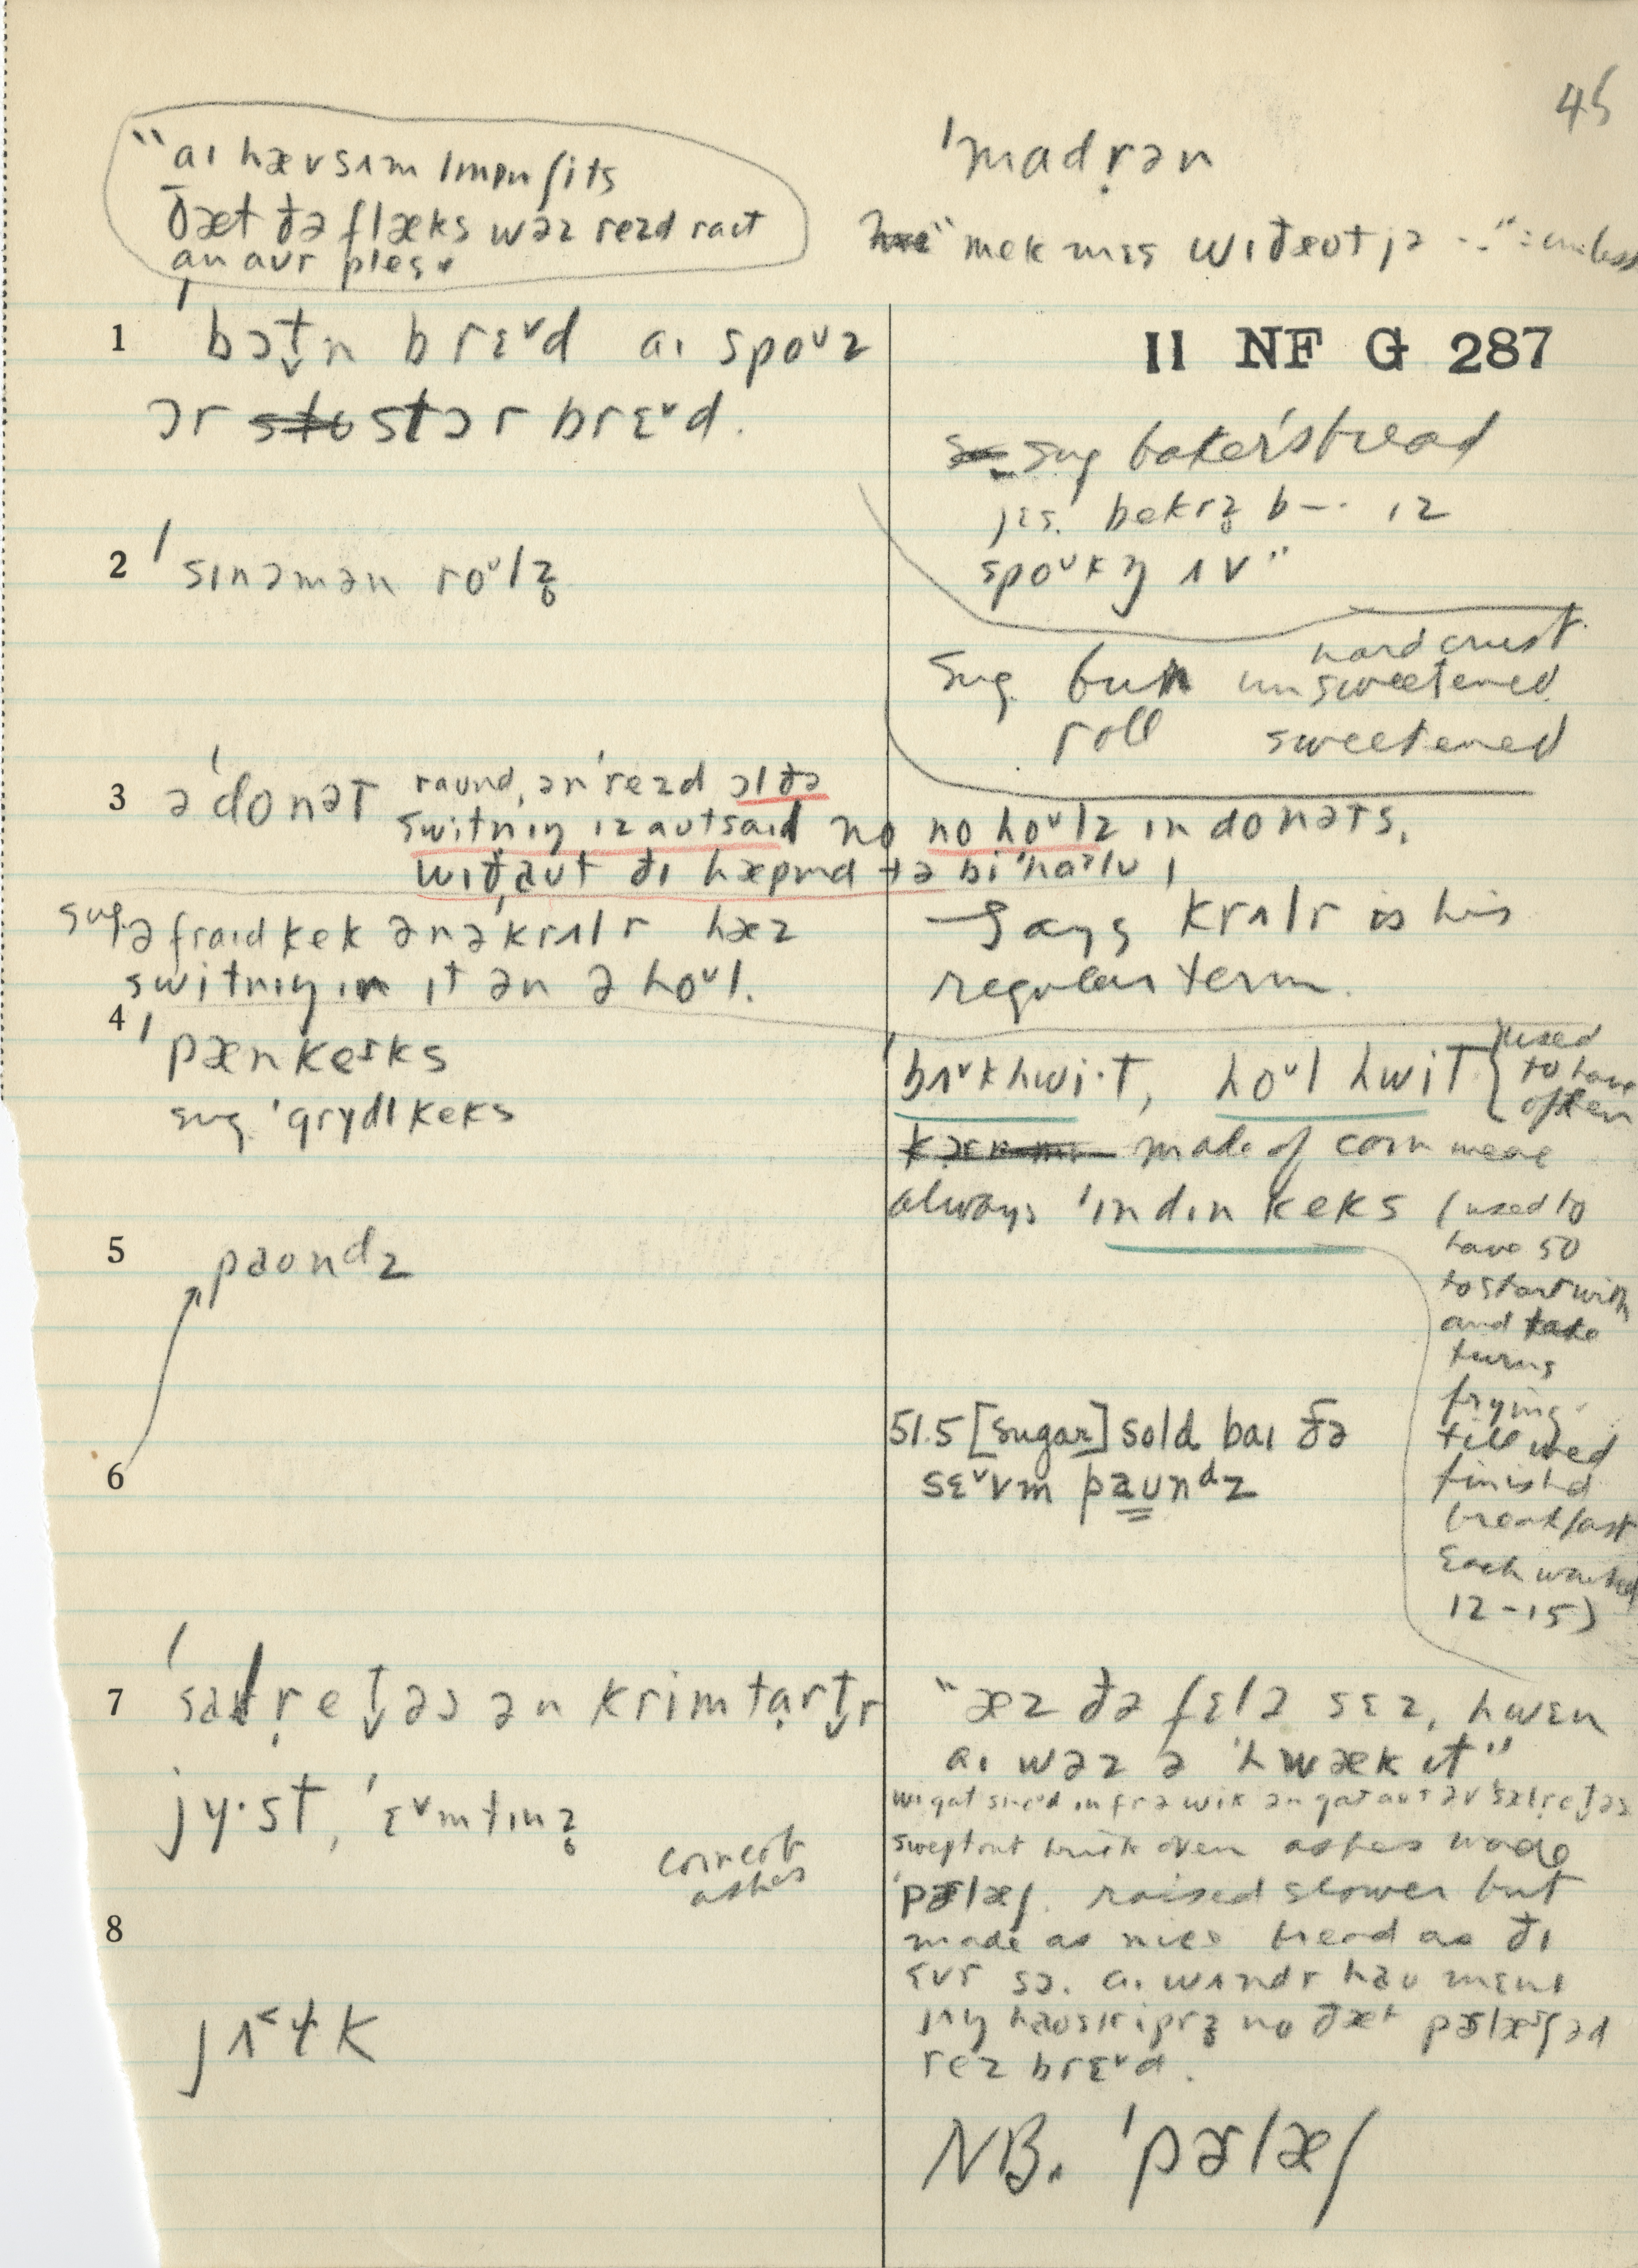 45
"aɪ hæv sʌm
ðæt ðə flæks wəz rezd raɪt
an aʊr ples.
ˈmadrən
"mek mɪs wɪðəʊt jə --" = unless
II NF G 287
1 ˈbɔt̬n brɛᵛd aɪ spoᵛz
ɔr stɔr brɛᵛd.
sug baker's bread
jɛs. bekrz̥ b-- ɪz
spoᵛkŋ ʌv"
2 ˈsɪnəmən roᵛlz̥
Sug. bun hard crust unsweetened
roll sweetened
3 ə ˈdonət raʊnd, ən ˈrezd ɔl ðə
switnɪŋ ɪz aʊtsaɪd no no hoᵛlz ɪn donəts.
wɪðˌəʊt ðɪ hæpmd tə bi
sug. ə fraɪd kek ən ə ˈkrʌlr hæz
switnɪŋ ɪn ɪt ən ə hoᵛl.
Says krʌlr is his
regular term.
4 ˈpænkeɪks
sug. ˈgrydl keks
ˈbʌᵛkhwi·t, hoᵛl hwit { used to have often
made of corn meal
always ˈɪndɪn keks (used to
have 50
to start with
and take
turns
frying
till used
finished
breakfast
Each wanted
12-15)
5 pəʊndz
6
51.5 [sugar] sold baɪ ðə
sɛᵛvm pəʊnᵈz
7 ˈsalr̩et̬əs ən krimtart̬r
"æz ðə fɛlə sɛz, hwɛn
aɪ wəz ə ˈhwæk ɪt"
jy·st, ˈɛᵛmtɪnz̥
corncob
ashes
swept out brick oven ashes made
ˈpɚlæʃ. raised slower but
made as nice bread as ðɪ
sə. aɪ wʌndr haʊ mɛnɪ
jʌŋ həʊskiprz̥ no ðæt pɚlæʃ əd
rez brɛᵛd.
8
jʌ˂ɫk
NB. ˈpɚlæʃ